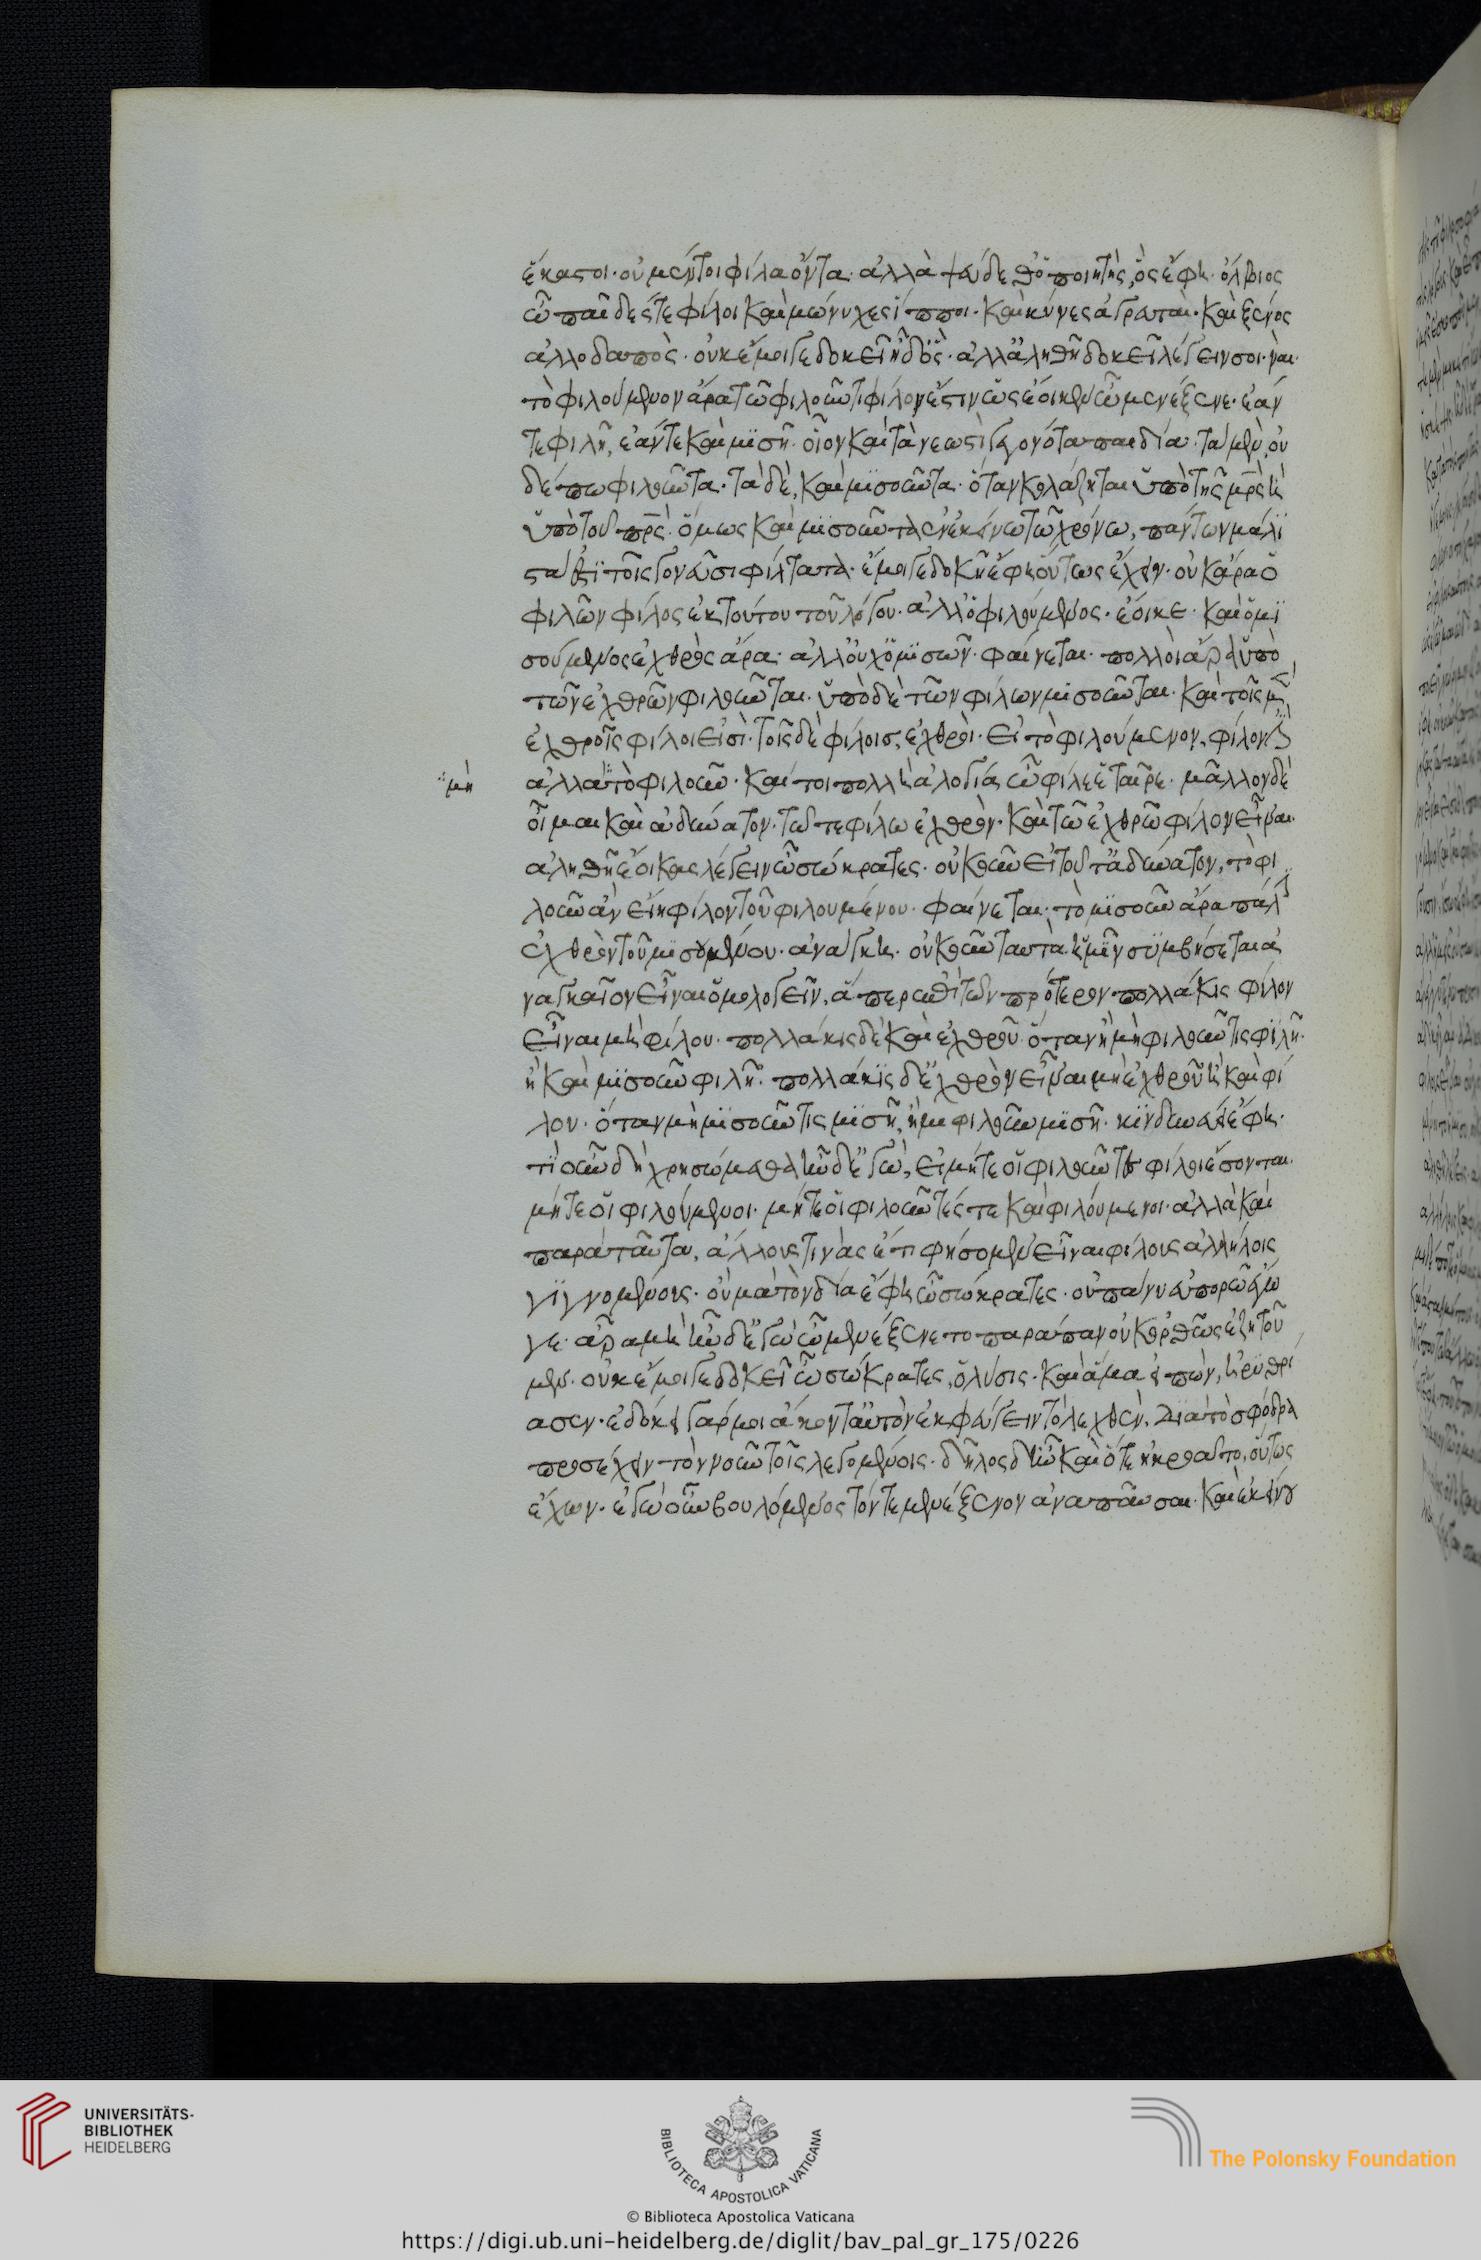 ἕκαστοι· οὐ μέντοι φίλα ὄντα· ἀλλὰ ψεύδεθ' ὁ ποιητής, ὃς ἔφη· ὄλβιος
ὧ παῖδές τε φίλοι καὶ μώνυχες ἵπποι· καὶ κύνες ἀγρευταὶ· καὶ ξένος
ἀλλοδαπὸς· οὐκ ἔμοιγε δοκεῖ ἦ δ' ὃς· ἀλλ' ἀληθῆ δοκεῖ λέγειν σοι· ναι·
τὸ φιλούμενον ἄρα τῶ φιλοῦντι φίλον ἐστιν ὡς ἔοικεν ὦ μενέξενε· ἐάν
τε φιλῆ, ἐάν τε καὶ μισῆ· οἷον καὶ τὰ νεωστὶ γεγονότα παιδία· τὰ μὲν, οὐ
δέπω φιλοῦντα· τὰ δὲ, καὶ μισοῦντα· ὅταν κολάζηται ὑπὸ τῆς μρ̅ς ἢ
ὑπὸ τοῦ πρ̅ς· ὅμως καὶ μισοῦντα ἐν ἐκείνω τῶ χρόνω, πάντων μάλι
στά ἐστι τοῖς γονεῦσι φίλτατα· ἔμοιγε δοκεῖ ἔφη οὕτως ἔχειν· οὐκ ἄρα ὁ
φιλῶν φίλος ἐκ τούτου τοῦ λόγου· ἀλλ' ὁ φιλούμενος· ἔοικε· καὶ ὁ μι
σούμενος ἐχθρὸς ἄρα· ἀλλ' οὐχ ὁ μισῶν· φαίνεται· πολλοὶ ἄρα ὑπὸ
τῶν ἐχθρῶν φιλοῦνται· ὑπὸ δὲ τῶν φίλων μισοῦνται· καὶ τοῖς μὲν
ἐχθροῖς φίλοι εἰσὶ· τοῖς δὲ φίλοις, ἐχθροὶ· εἰ τὸ φιλούμενον, φίλον ἐστὶν
μὴ
ἀλλὰ τὸ φιλοῦν· καί τοι πολλὴ ἀλογία ὦ φίλε ἑταῖρε· μᾶλλον δὲ
οἶμαι καὶ ἀδύνατον· τῶ τε φίλω ἐχθρὸν· καὶ τῶ ἐχθρῶ φίλον εἶναι·
ἀληθῆ ἔοικας λέγειν ὦ σώκρατες· οὐκοῦν εἰ τοῦτ' ἀδύνατον, τὸ φι
λοῦν ἂν εἴη φίλον τοῦ φιλουμένου· φαίνεται· τὸ μισοῦν ἄρα πάλιν
ἐχθρὸν τοῦ μισουμένου· ἀνάγκη· οὐκοῦν ταυτὰ ἡμῖν συμβήσεται ἀ
ναγκαῖον εἶναι ὁμολογεῖν, ἅπερ ἐπὶ τῶν πρότερον πολλάκις φίλον
εἶναι μὴ φίλου· πολλάκις δὲ καὶ ἐχθροῦ· ὅταν ἢ μὴ φιλοῦν τις φιλῆ·
ἢ καὶ μισοῦν φιλῆ· πολλάκις δ' ἐχθρὸν εἶναι μὴ ἐχθροῦ ἢ καὶ φί
λου· ὅταν μὴ μισοῦν τις μισῆ, ἢ μὴ φιλοῦν μισῆ· κινδυνεύει ἔφη·
τί οὖν δὴ χρησώμεθα ἦν δ' ἐγὼ, εἰ μήτε οἱ φιλοῦντες φίλοι ἔσονται·
μήτε οἱ φιλούμενοι· μήτε οἱ φιλοῦντές τε καὶ φιλούμενοι· ἀλλὰ καὶ
παρὰ ταῦτα, ἄλλους τινὰς ἔτι φήσομεν εἶναι φίλους ἀλλήλοις
γιγνομένους· οὐ μὰ τὸν δία ἔφη ὦ σώκρατες· οὐ πάνυ εὐπορῶ ἔγω
γε· ἆρα μὴ ἦν δ' ἐγὼ ὦ μενέξενε το παράπαν οὐκ ὀρθῶς ἐζητοῦ
μεν· οὐκ ἔμοιγε δοκεῖ ὦ σώκρατες, ὁ λύσις· καὶ ἅμα εἰπὼν, ἠρυθρί
ασεν· ἐδόκει γάρ μοι ἄκοντ' αὐτὸν ἐκφεύγειν τὸ λεχθὲν, διὰ τὸ σφόδρα
προσέχειν τὸν νοῦν τοῖς λεγομένοις· δῆλος δ' ἦν καὶ ὅτε ἠκροᾶτο, οὕτως
ἔχων· ἐγὼ οὖν βουλόμενος τόν τε μενέξενον ἀναπαῦσαι· καὶ ἐκείνου
UNIVERSITÄTS-
BIBLIOTHEK
HEIDELBERG
BIBLIOTECA APOSTOLICA VATICANA
The Polonsky Foundation
© Biblioteca Apostolica Vaticana
https://digi.ub.uni-heidelberg.de/diglit/bav_pal_gr_175/0226